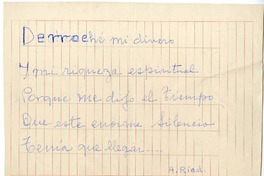 Derroché mi divero
Y mi riqueza espiritual
Porque me dijo el Tiempo
Que este enorme Silencio
Tenía que llegar....
A. Rial.